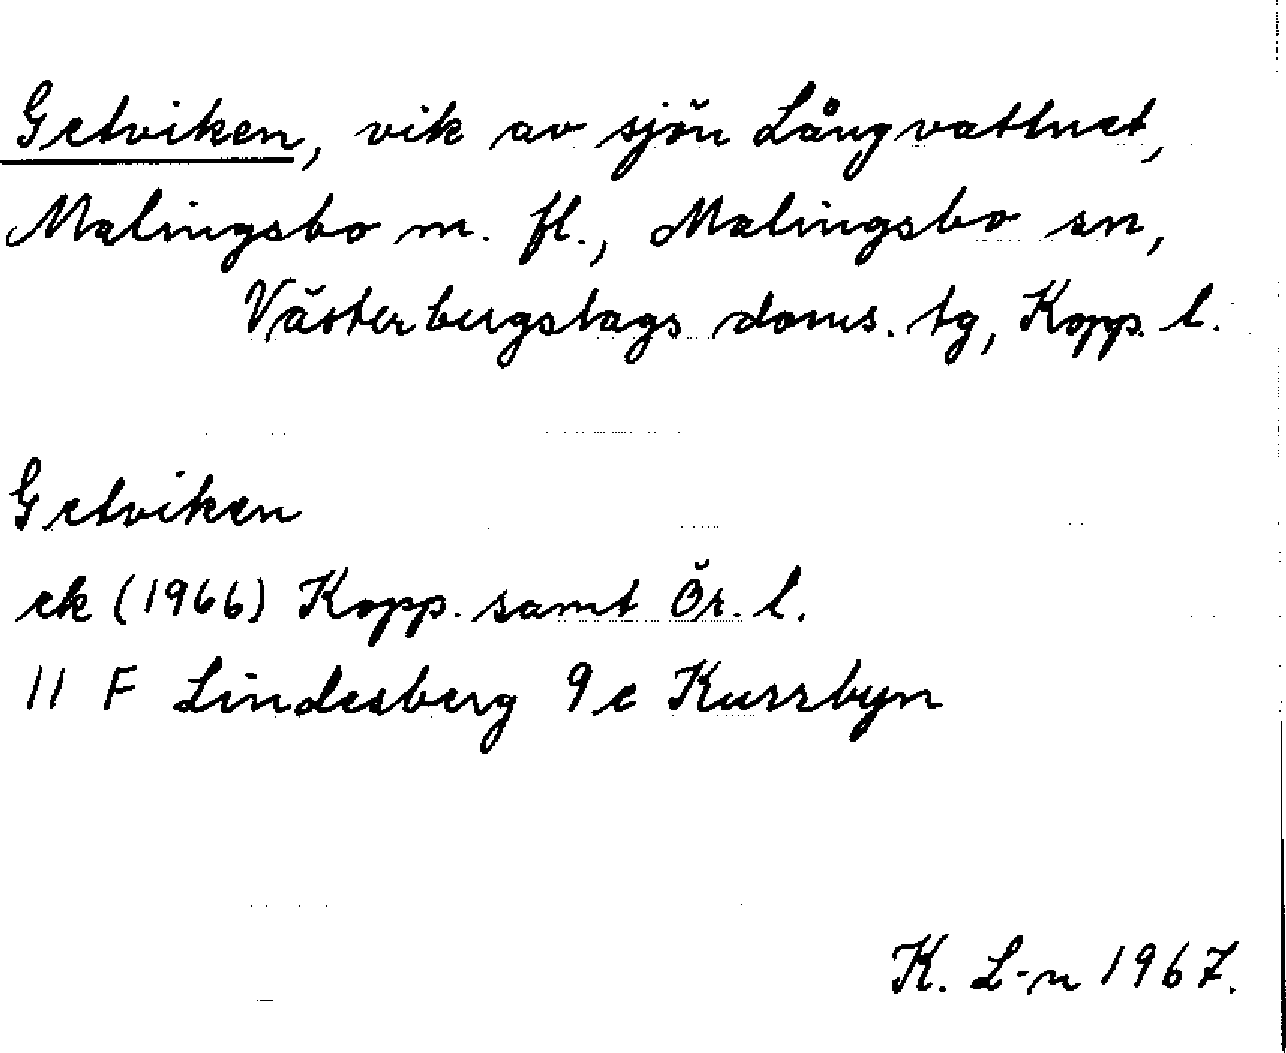 Getviken, vik av sjön Långvattnet,
Malingsbo m. fl., Malingsbo sn,
Västerbergslags doms. tg, Kopp. l.
Getviken
ek (1966) Kopp. samt Ör. l.
11 F Lindesberg 9 c Kursbyn
K. L-n 1967.